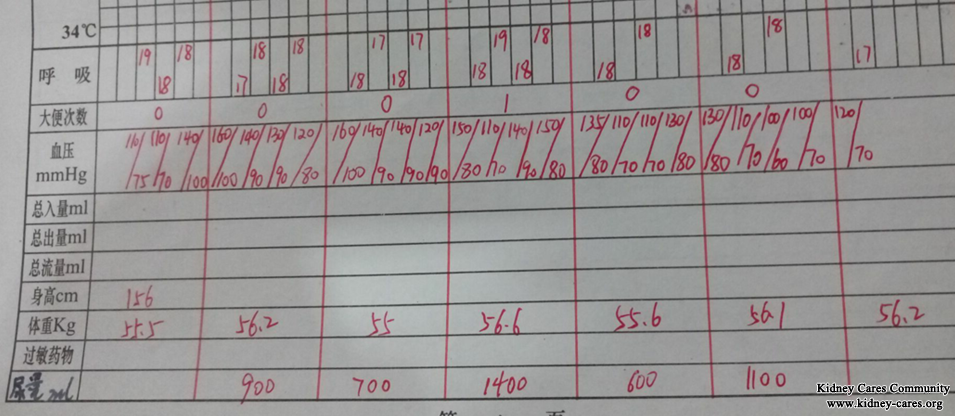 34℃
呼吸 19 18 18 17 18 18 18 18 17 18 17 18 19 18 18 18 18 18 18 17
大便次数 0 0 0 1 0 0
血压 mmHg 110/75 110/70 140/100 160/100 140/90 130/90 120/80 160/100 140/90 140/90 120/90 150/80 110/70 140/90 150/80 135/80 110/70 110/70 130/80 130/80 110/70 100/60 100/70 120/70
总入量ml
总出量ml
总流量ml
身高cm 156
体重Kg 55.5 56.2 55 56.6 55.6 56.1 56.2
过敏药物
尿量ml 900 700 1400 600 1100
Kidney Cares Community
www.kidney-cares.org